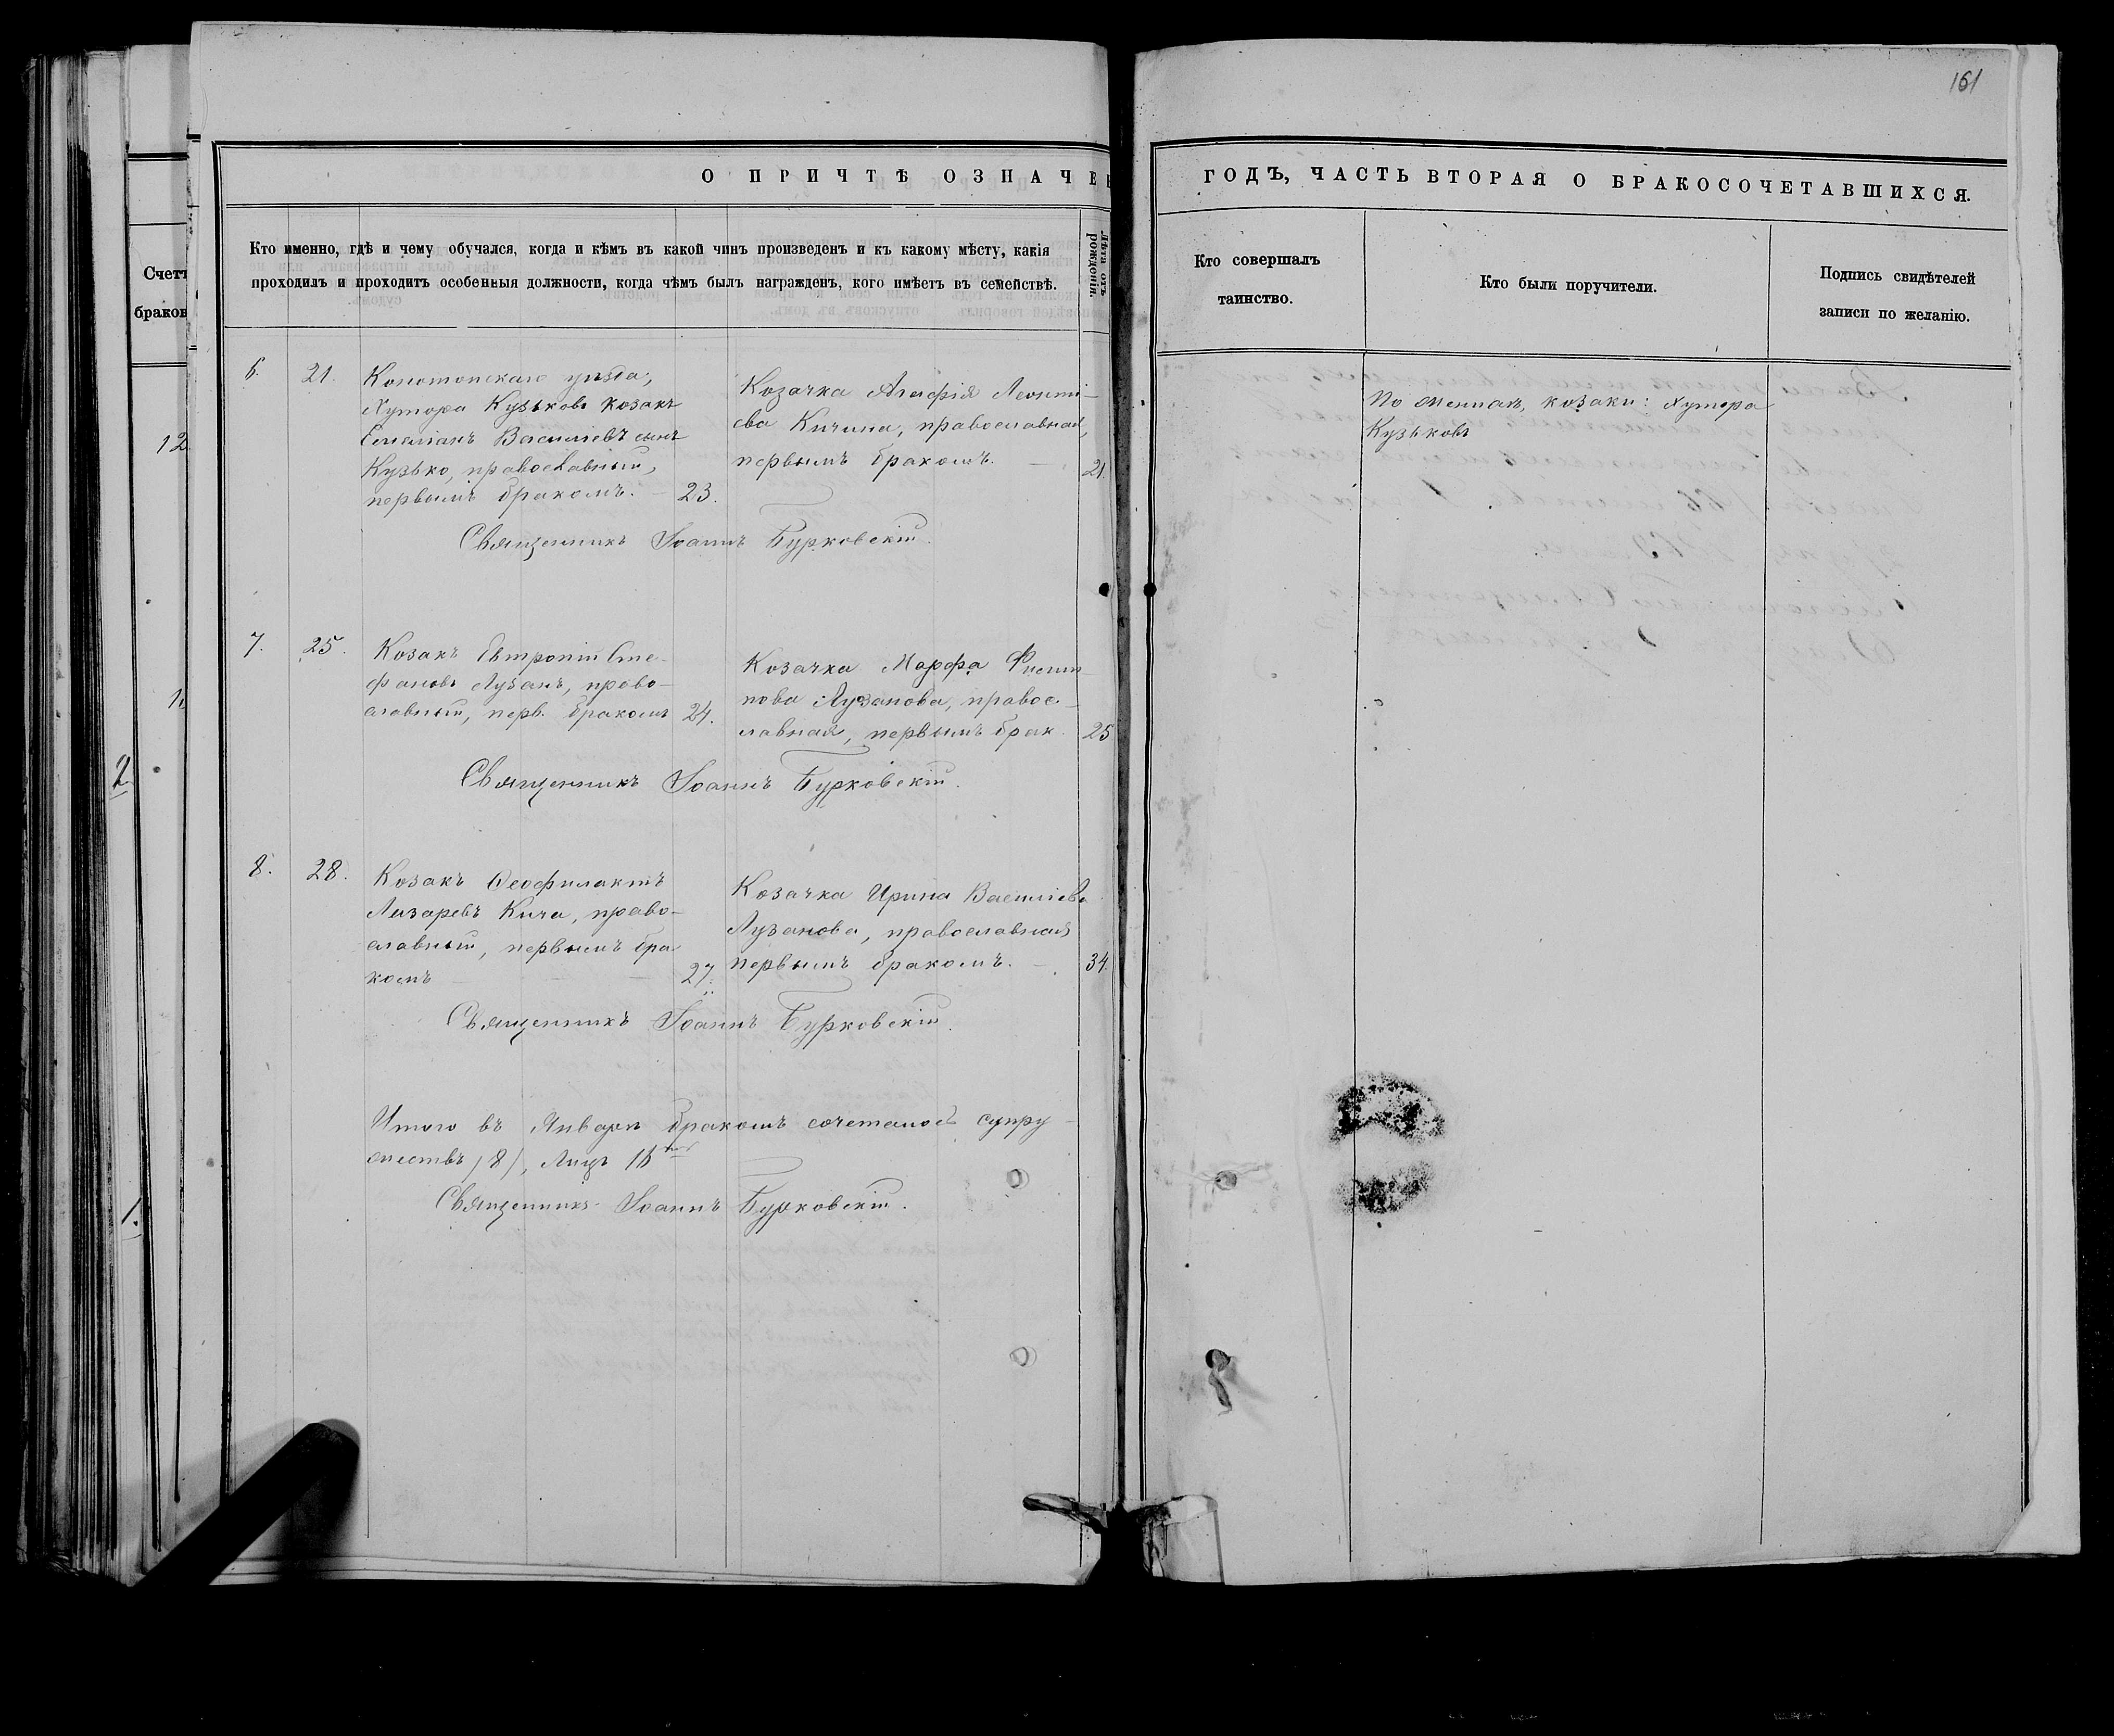 161
О ПРИЧТѢ ОЗНАЧЕ
Кто именно, гдѣ и чему обучался, когда и кѣмъ въ какой чинъ произведенъ и къ какому мѣсту, какія
проходилъ и проходитъ особенныя должности, когда чѣмъ былъ награжденъ, кого имѣетъ въ семействѣ.
Лѣта отъ
рожденія.
Счетъ
браковъ
12
1
2
1.
6. 21.
Конотопскаго уѣзда,
Хутора Кузьковъ козакъ
Емеліанъ Васильевъ сынъ
Кузько, православный,
первымъ бракомъ. — 23.
Козачка Агафія Леонті-
ева Кичина, православная,
первымъ бракомъ. — 21.
Священникъ Іоаннъ Бурковскій.
7. 25.
Козакъ Евтропій Сте-
фановъ Лузанъ, право-
славный, перв. бракомъ 24.
Козачка Марфа Филип-
пова Лузанова, правос-
лавная, первымъ брак. 25
Священникъ Іоаннъ Бурковскій.
8. 28.
Козакъ Ѳеофилактъ
Лазаревъ Кича, право-
славный, первымъ бра
комъ — 27.
Козачка Ирина Васильева
Лузанова, православная
первымъ бракомъ. — 34.
Священникъ Іоаннъ Бурковскій.
Итого въ Январѣ бракомъ сочеталось супру-
жествъ /8/, Лицъ 16
Священникъ Іоаннъ Бурковскій.
ГОДЪ, ЧАСТЬ ВТОРАЯ О БРАКОСОЧЕТАВШИХСЯ.
Кто совершалъ
таинство.
Кто были поручители.
Подпись свидѣтелей
записи по желанію.
По женихѣ, козаки: Хутора
Кузьковъ